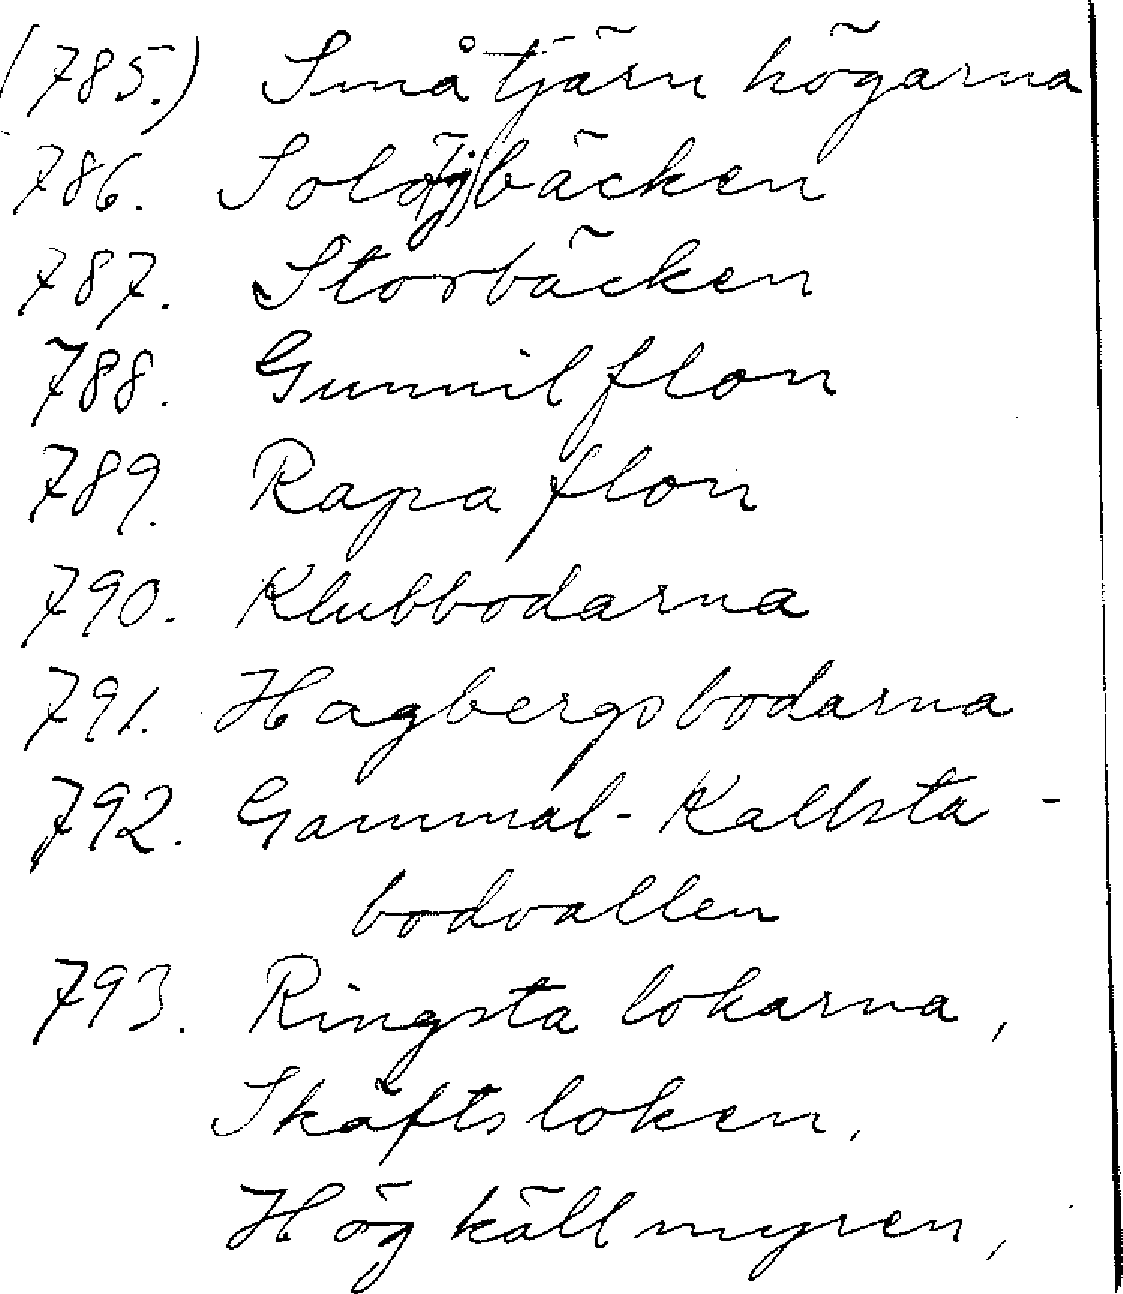 (785.) Småtjärnhögarna
786. Solö(j)bäcken
787. Storbäcken
788. Gunnilflon
789. Rapaflon
790. Klubbodarna
791. Hagbergsbodarna
792. Gammal-Kallsta-
bodvallen
793. Ringstalokarna,
Skaftsloken,
Högkällmyren,